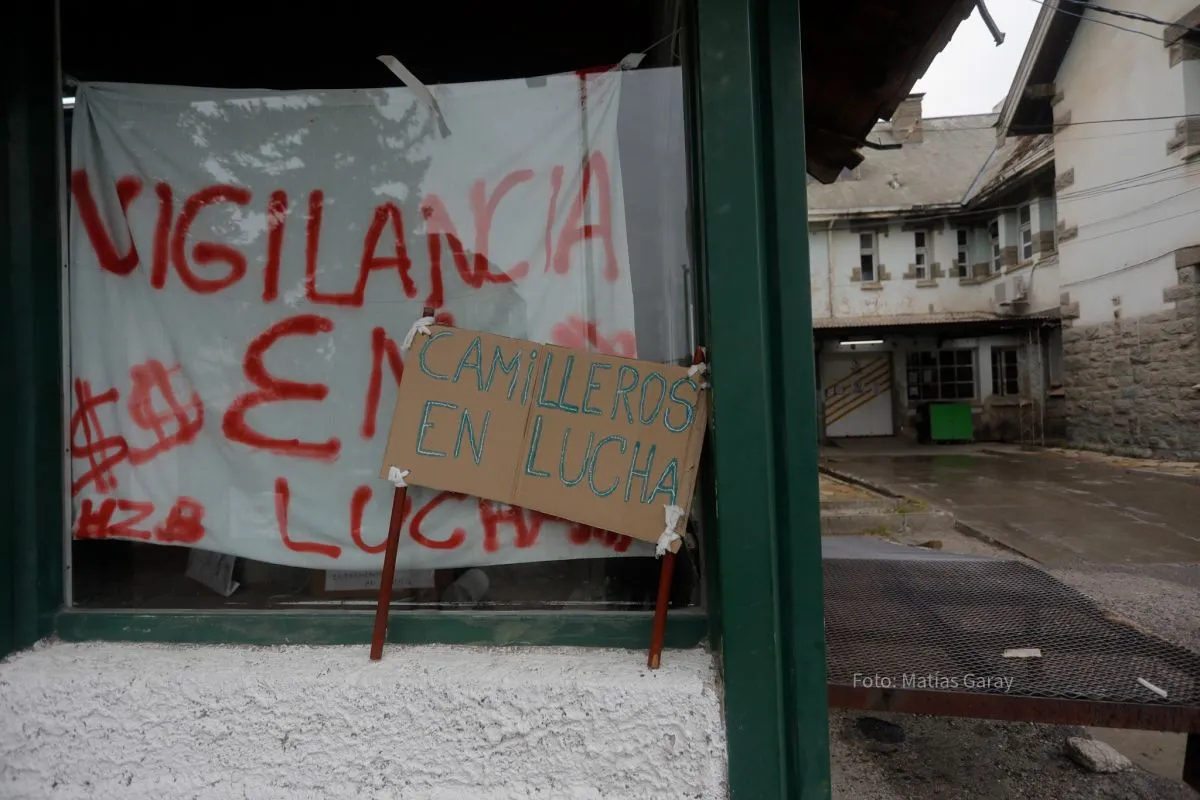 VIGILANCIA
EN
$$
LUCHA
HZB
CAMILLEROS
EN LUCHA
Foto: Matías Garay